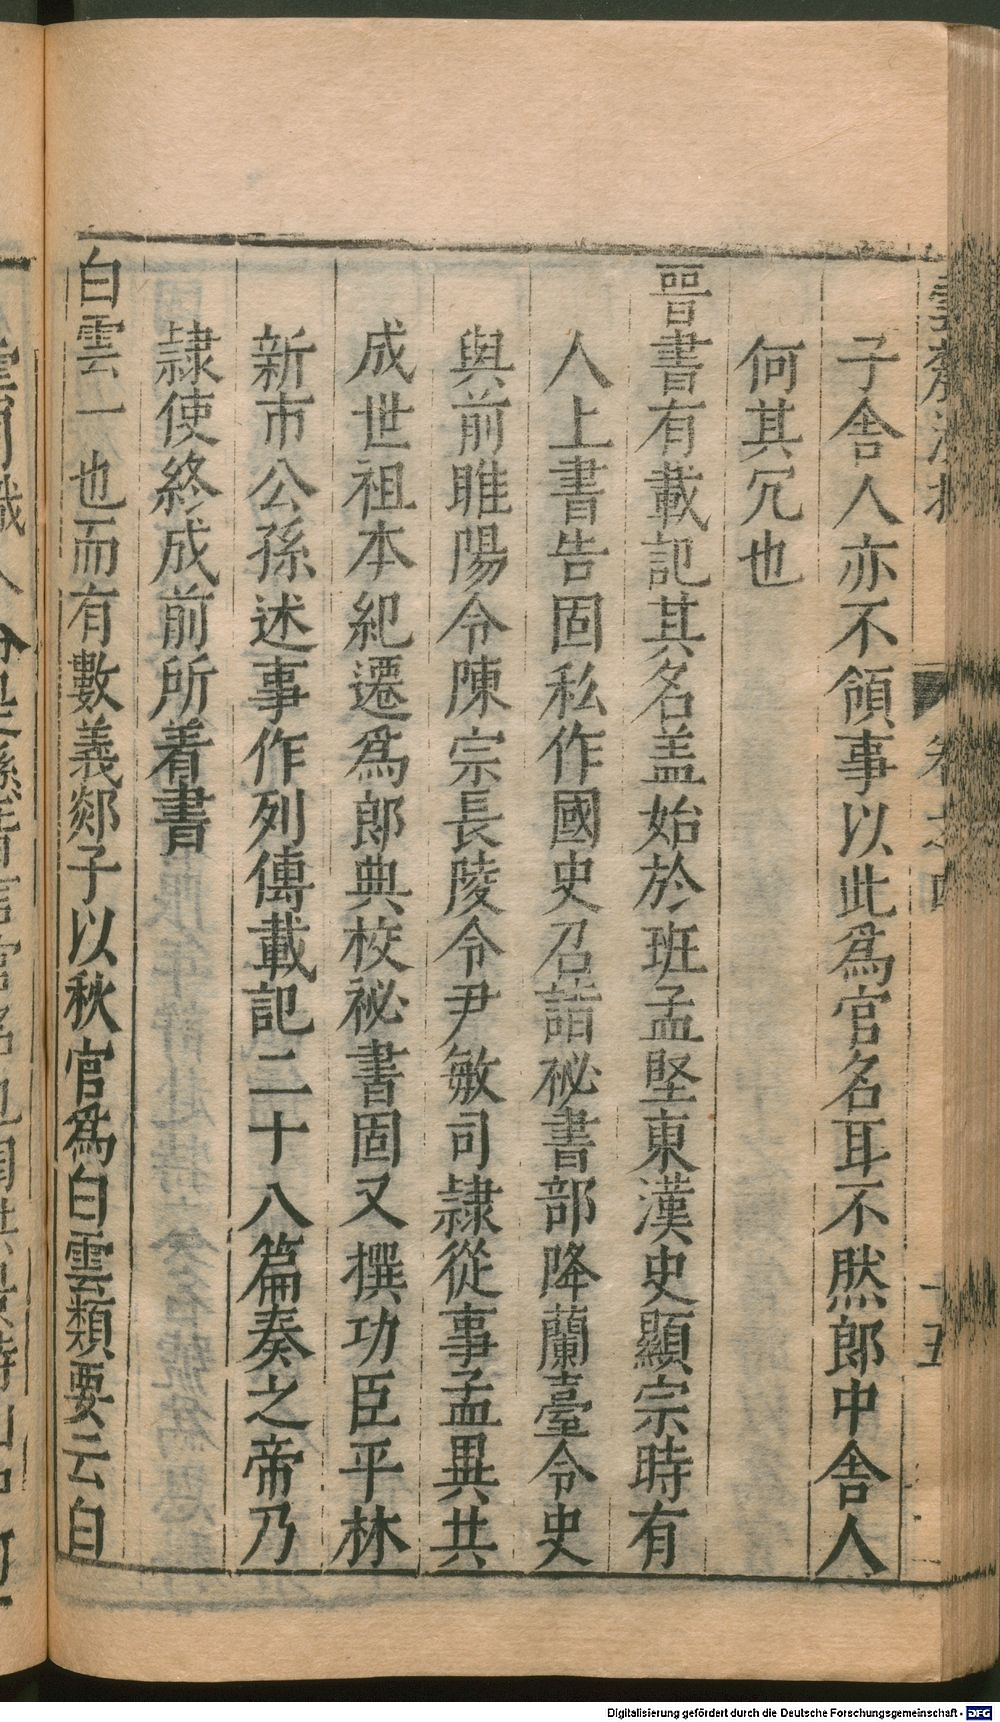 子舍人亦不領事以此爲官名耳不然郎中舍人
何其冗也
晉書有載記其名盖始於班孟堅東漢史顯宗時有
人上書告固私作國史召詣祕書部降蘭臺令史
與前睢陽令陳宗長陵令尹敏司隷從事孟異共
成世祖本紀遷爲郎典校祕書固又撰功臣平林
新市公孫述事作列傳載記二十八篇奏之帝乃
隷使終成前所着書
白雲一也而有數義郯子以秋官爲白雲類要云白
Digitalisierung gefördert durch die Deutsche Forschungsgemeinschaft - DFG